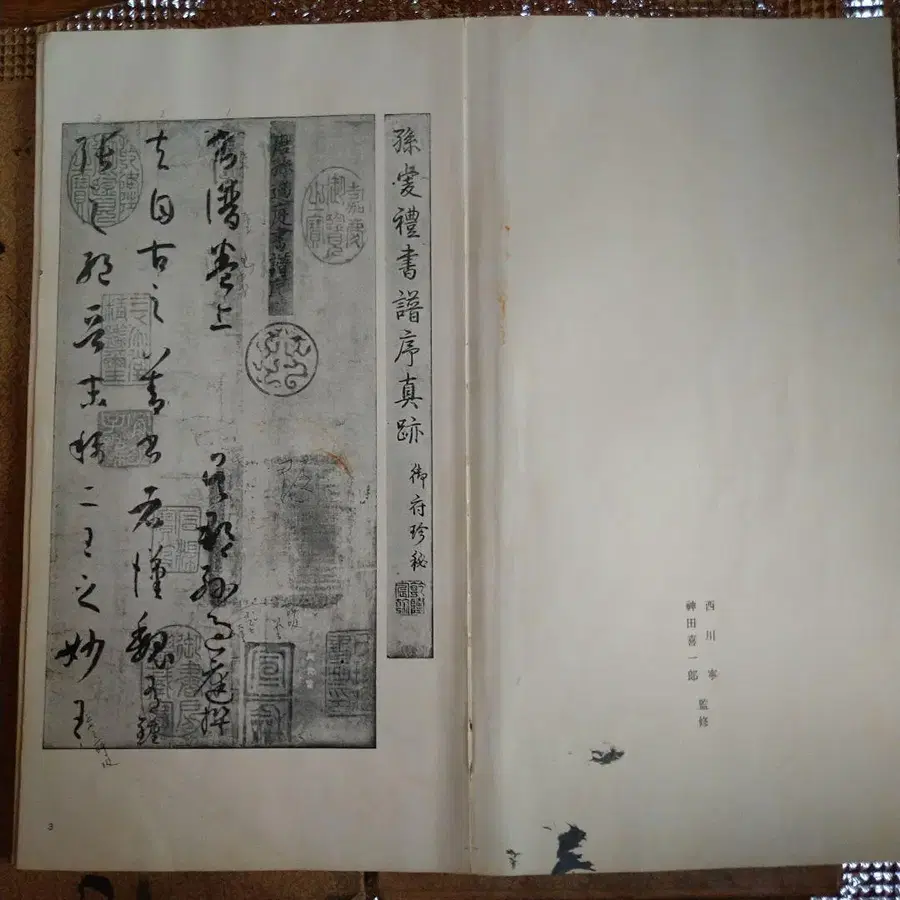 西川寧
神田喜一郎 監修
孫虔禮書譜序真跡 御府珍秘
嘉慶御覽之寶
書譜卷上 吳郡孫過庭撰
夫自古之善書者漢魏有鍾
張之絕晉末稱二王之妙王
3